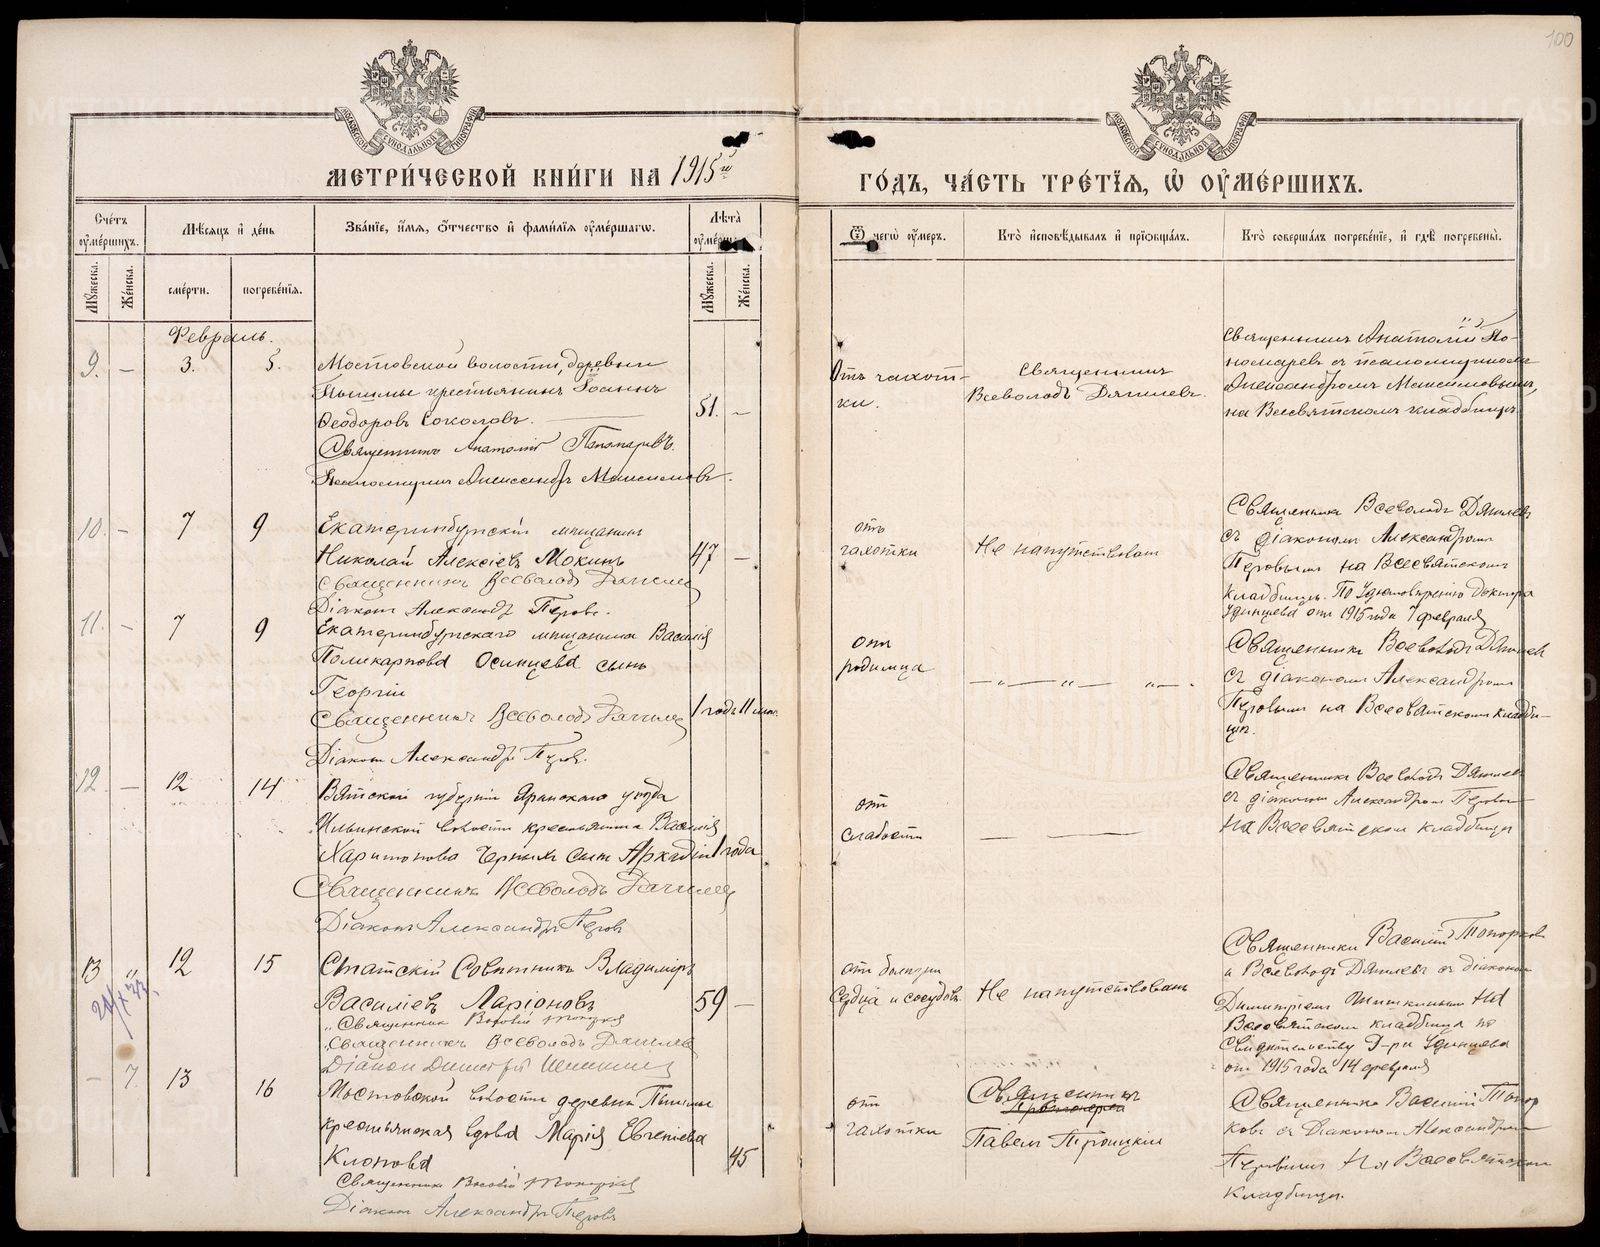 100
МЕТРИ́ЧЕСКОЙ КНИ́ГИ НА 1915й
ГО́ДЪ, ЧА́СТЬ ТРЕ́ТІѦ, Ѡ ОУМЕ́РШИХЪ.
Сче́тъ оумершихъ.
Мѣсяцъ и день
Зва́ніе, и́мя, о́тчество и фами́лія оуме́ршагѡ.
Лѣта̀ оуме́рш
Ѿ чегѡ̀ оу́меръ.
Кто̀ исповѣдывалъ и пріобща́лъ.
Кто̀ соверша́лъ погребе́ніе, и гдѣ погребены̀.
Мужеска.
Женска.
сме́рти.
погребе́нія.
Мужеска.
Женска.
Февраль.
9. – 3. 5.
Мостовской волости, деревни
Пышмы крестьянинъ Іоаннъ
Ѳеодоровъ Соколовъ.
51. –
Священникъ Анатолій Пономаревъ.
Псаломщикъ Александръ Максимовъ.
Отъ чахот-
ки.
Священникъ
Всеволодъ Дягилевъ.
Священникъ Анатолій По-
номаревъ съ псаломщикомъ
Александромъ Максимовымъ,
на Всесвятскомъ кладбищѣ
10. – 7 9
Екатеринбургскій мѣщанинъ
Николай Алексіевъ Мокинъ
47 –
Священникъ Всеволодъ Дягилев
Діаконъ Александръ Перовъ.
отъ
чахотки
Не напутствованъ
Священникъ Всеволодъ Дягилевъ
съ діакономъ Александромъ
Перовымъ на Всесвятскомъ
кладбищѣ. По удостоверению доктора
Удинцева отъ 1915 года 7 февраля
11. – 7 9
Екатеринбургскаго мѣщанина Василія
Поликарпова Осинцева сынъ
Георгій
1 годъ 11 мѣс.
Священникъ Всеволодъ Дягилев
Діаконъ Александръ Перовъ.
отъ
родимца
– „ – „ – „ – .
Священникъ Всеволодъ Дягилев
съ діакономъ Александромъ
Перовымъ на Всесвятскомъ кладби-
щѣ.
12. – 12 14
Вятской губерніи Яранскаго уѣзда
Ильинской волости крестьянина Василія
Харитонова Черныхъ сынъ Аркадій
1 года
Священникъ Всеволодъ Дягилев
Діаконъ Александръ Перовъ
отъ
слабости
— ——
Священникъ Всеволодъ Дягилев
съ діакономъ Александромъ Перовым
на Всесвятскомъ кладбищѣ
13 „ 12 15
Статскій Совѣтникъ Владиміръ
Василіевъ Ларіоновъ
59 –
Священникъ Василій Топорков
Священникъ Всеволодъ Дягилев
Діакон Димитрій Шишкин
отъ болѣзни
сердца и сосудовъ.
Не напутствованъ
Священники Василій Топорков
и Всеволодъ Дягилевъ съ діакономъ
Димитріемъ Шишкинымъ на
Всесвятскомъ кладбищѣ по
свидѣтельству Д-ра Удинцева
от 1915 года 14 февраля
– 7. 13 16
Мостовской волости деревни Пышмы
крестьянская вдова Марія Евгеніева
Клопова
45
Священникъ Василій Топорков
Діаконъ Александръ Перовъ
отъ
чахотки
Священникъ
Павелъ Троицкій
Священникъ Василій Топор
ковъ съ Діакономъ Александромъ
Перовымъ на Всесвятскомъ
кладбищѣ.